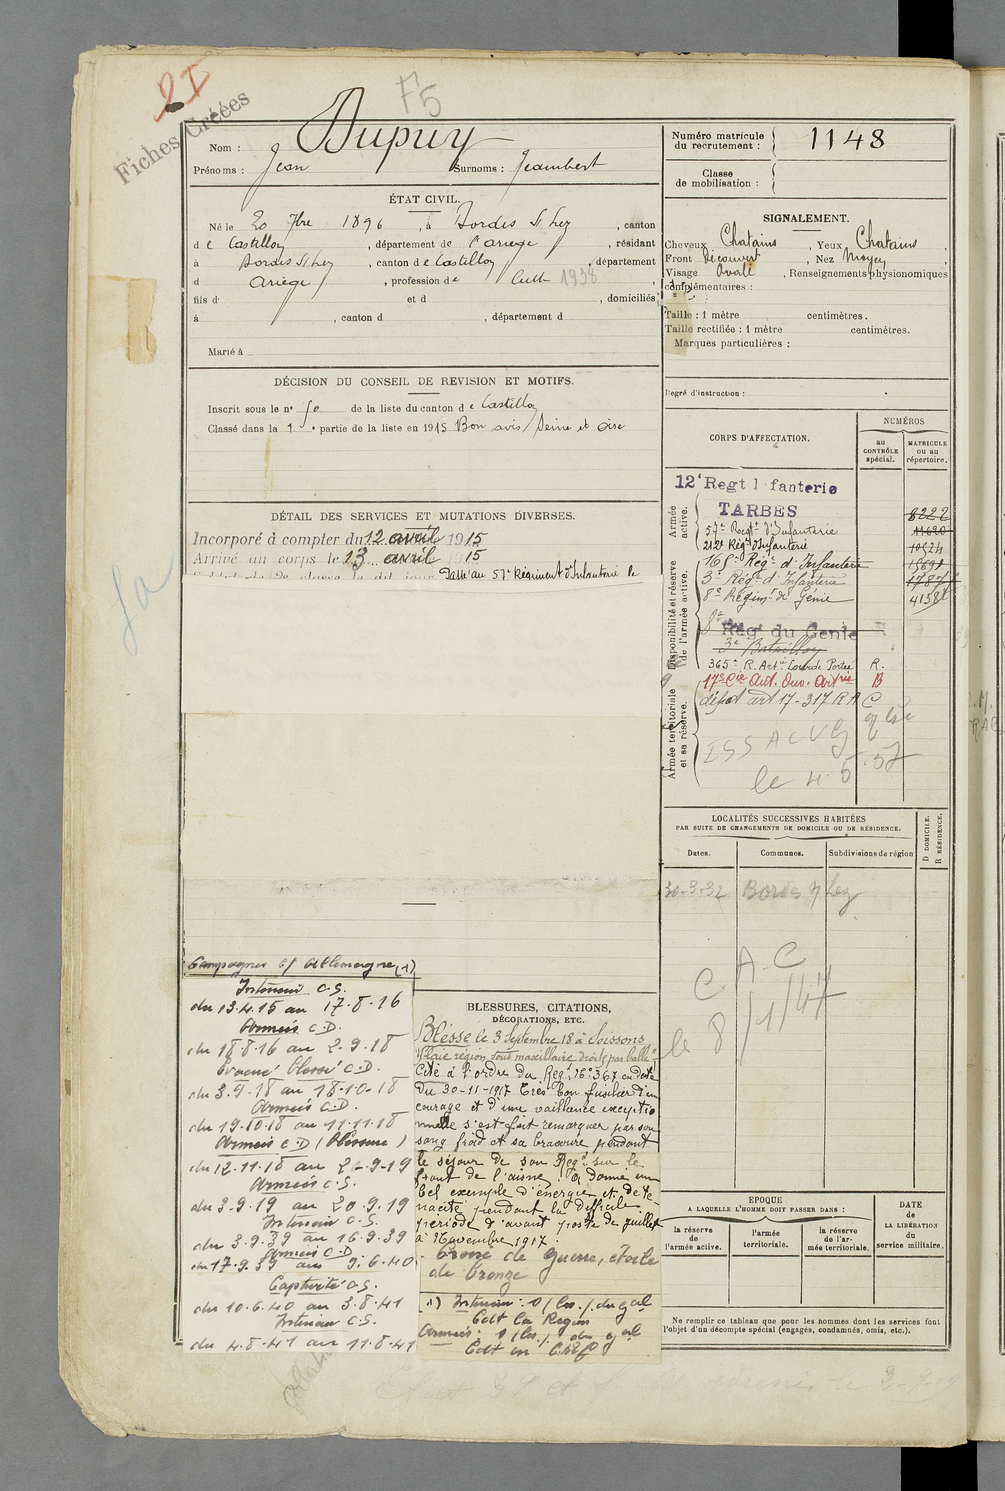 2I
F5
Fiches Créées
Nom : Dupuy
Prénoms : Jean Surnoms : Jeambert
ÉTAT CIVIL.
Né le 20 7bre 1896 , à Bordes S/ Lez , canton
d e Castillon , département de l'ariege , résidant
à Bordes S/ Lez , canton de Castillon , département
d Ariège , profession de Cult 1938
fils d et d , domiciliés
à , canton d , département d
Marié à
DÉCISION DU CONSEIL DE REVISION ET MOTIFS.
Inscrit sous le n° 50 de la liste du canton d e Castillon
Classé dans la 1e partie de la liste en 1915 Bon avis / Seine et Oise
DÉTAIL DES SERVICES ET MUTATIONS DIVERSES.
Incorporé à compter du 12 avril 1915
Arrivé au corps le 13 avril 1915
Passé au 57e Régiment d'Infanterie le
Campagnes c/ Allemagne (1)
Intérieur C.S.
du 13.4.15 au 17.8.16
Armées C.D.
du 18.8.16 au 2.9.18
Evacué blessé C.D.
du 3.9.18 au 18.10.18
Armées C.D.
du 19.10.18 au 11.11.18
Armées C.D (Blessure)
du 12.11.18 au 2-9-19
Armées C.S.
du 3.9.19 au 20.9.19
Intérieur C.S.
du 3.9.39 au 16.9.39
Armées C.D
du 17.9.39 au 9.6.40
Captivité C.S.
du 10.6.40 au 3.8.41
Intérieur C.S.
du 4.8.41 au 11.8.41
BLESSURES, CITATIONS,
DÉCORATIONS, ETC.
Blessé le 3 Septembre 18 à Soissons
"Plaie région sous maxillaire droite par balle"
Cité à l'ordre du Regt N° 367 en date
Du 30-11-1917 Très bon fusilier d'un
courage et d'une vaillance exceptio
nnelle s'est fait remarquer par son
sang froid et sa bravoure pendant
le séjour de son Regt sur le
front de l'aisne. A donné un
bel exemple d'énergie et de te
nacité pendant la difficile
période d'avant poste de juillet
à Novembre 1917.
Croix de Guerre, étoile
de bronze
(1) Intérieur : O/ du Gal
Cdt la Région
Armées : O/ du Gal
Cdt en Chef
Numéro matricule
du recrutement : 1148
Classe
de mobilisation :
SIGNALEMENT.
Cheveux Chatains , Yeux Chatains ,
Front Découvert , Nez Moyen
Visage Ovale , Renseignements physionomiques
complémentaires :
Taille : 1 mètre centimètres.
Taille rectifiée : 1 mètre centimètres.
Marques particulières :
Degré d'instruction :
CORPS D'AFFECTATION.
NUMÉROS
au
CONTRÔLE
spécial.
MATRICULE
ou au
répertoire.
Armée
active.
12e Regt Infanterie
TARBES 8222
57e Regt d'Infanterie 11620
212e Régt d'Infanterie 10524
Disponibilité et réserve
de l'armée active.
165e Régt d'Infanterie 15691
3e Régt d'Infanterie
8e Régimt de Génie
8e Rég. du Génie
3e Bataillon
365e R. Artie Lourde Portée R.
Armée territoriale
et sa réserve.
17e Cie Aut. Ouv. Artrie B
dépot art 17 - 317 RA C
le 4.5.57
LOCALITÉS SUCCESSIVES HABITÉES
PAR SUITE DE CHANGEMENTS DE DOMICILE OU DE RÉSIDENCE.
Dates. Communes. Subdivisions de région
D DOMICILE.
R RÉSIDENCE.
30-3-32 Bordes S/ Lez
C.A.C
le 8/1/47
EPOQUE
A LAQUELLE L'HOMME DOIT PASSER DANS :
la réserve
de
l'armée active.
l'armée
territoriale.
la réserve
de l'ar-
mée territoriale.
DATE
de
LA LIBÉRATION
du
service militaire.
Ne remplir ce tableau que pour les hommes dont les services font
l'objet d'un décompte spécial (engagés, condamnés, omis, etc.).